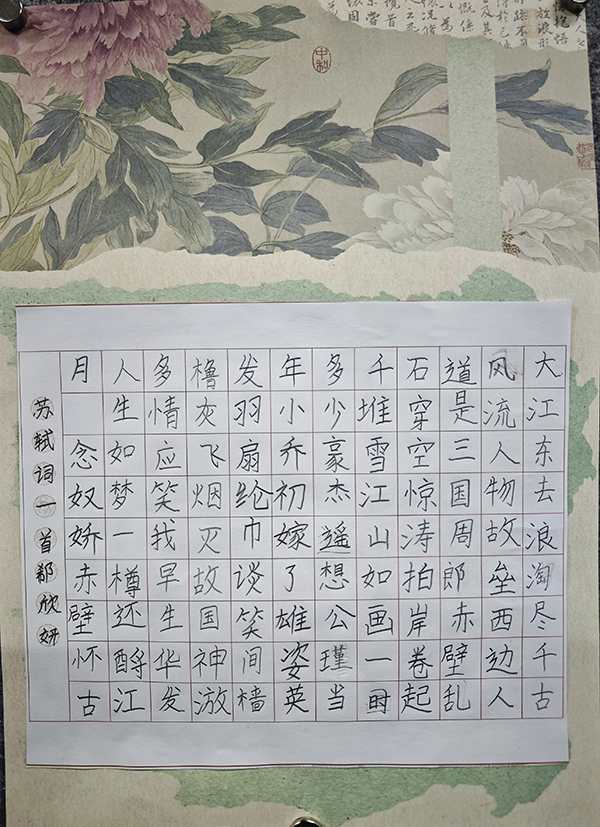 中和
大江东去浪淘尽千古
风流人物故垒西边人
道是三国周郎赤壁乱
石穿空惊涛拍岸卷起
千堆雪江山如画一时
多少豪杰遥想公瑾当
年小乔初嫁了雄姿英
发羽扇纶巾谈笑间樯
橹灰飞烟灭故国神游
多情应笑我早生华发
人生如梦一樽还酹江
月 念奴娇赤壁怀古
苏轼词一首 欣妍